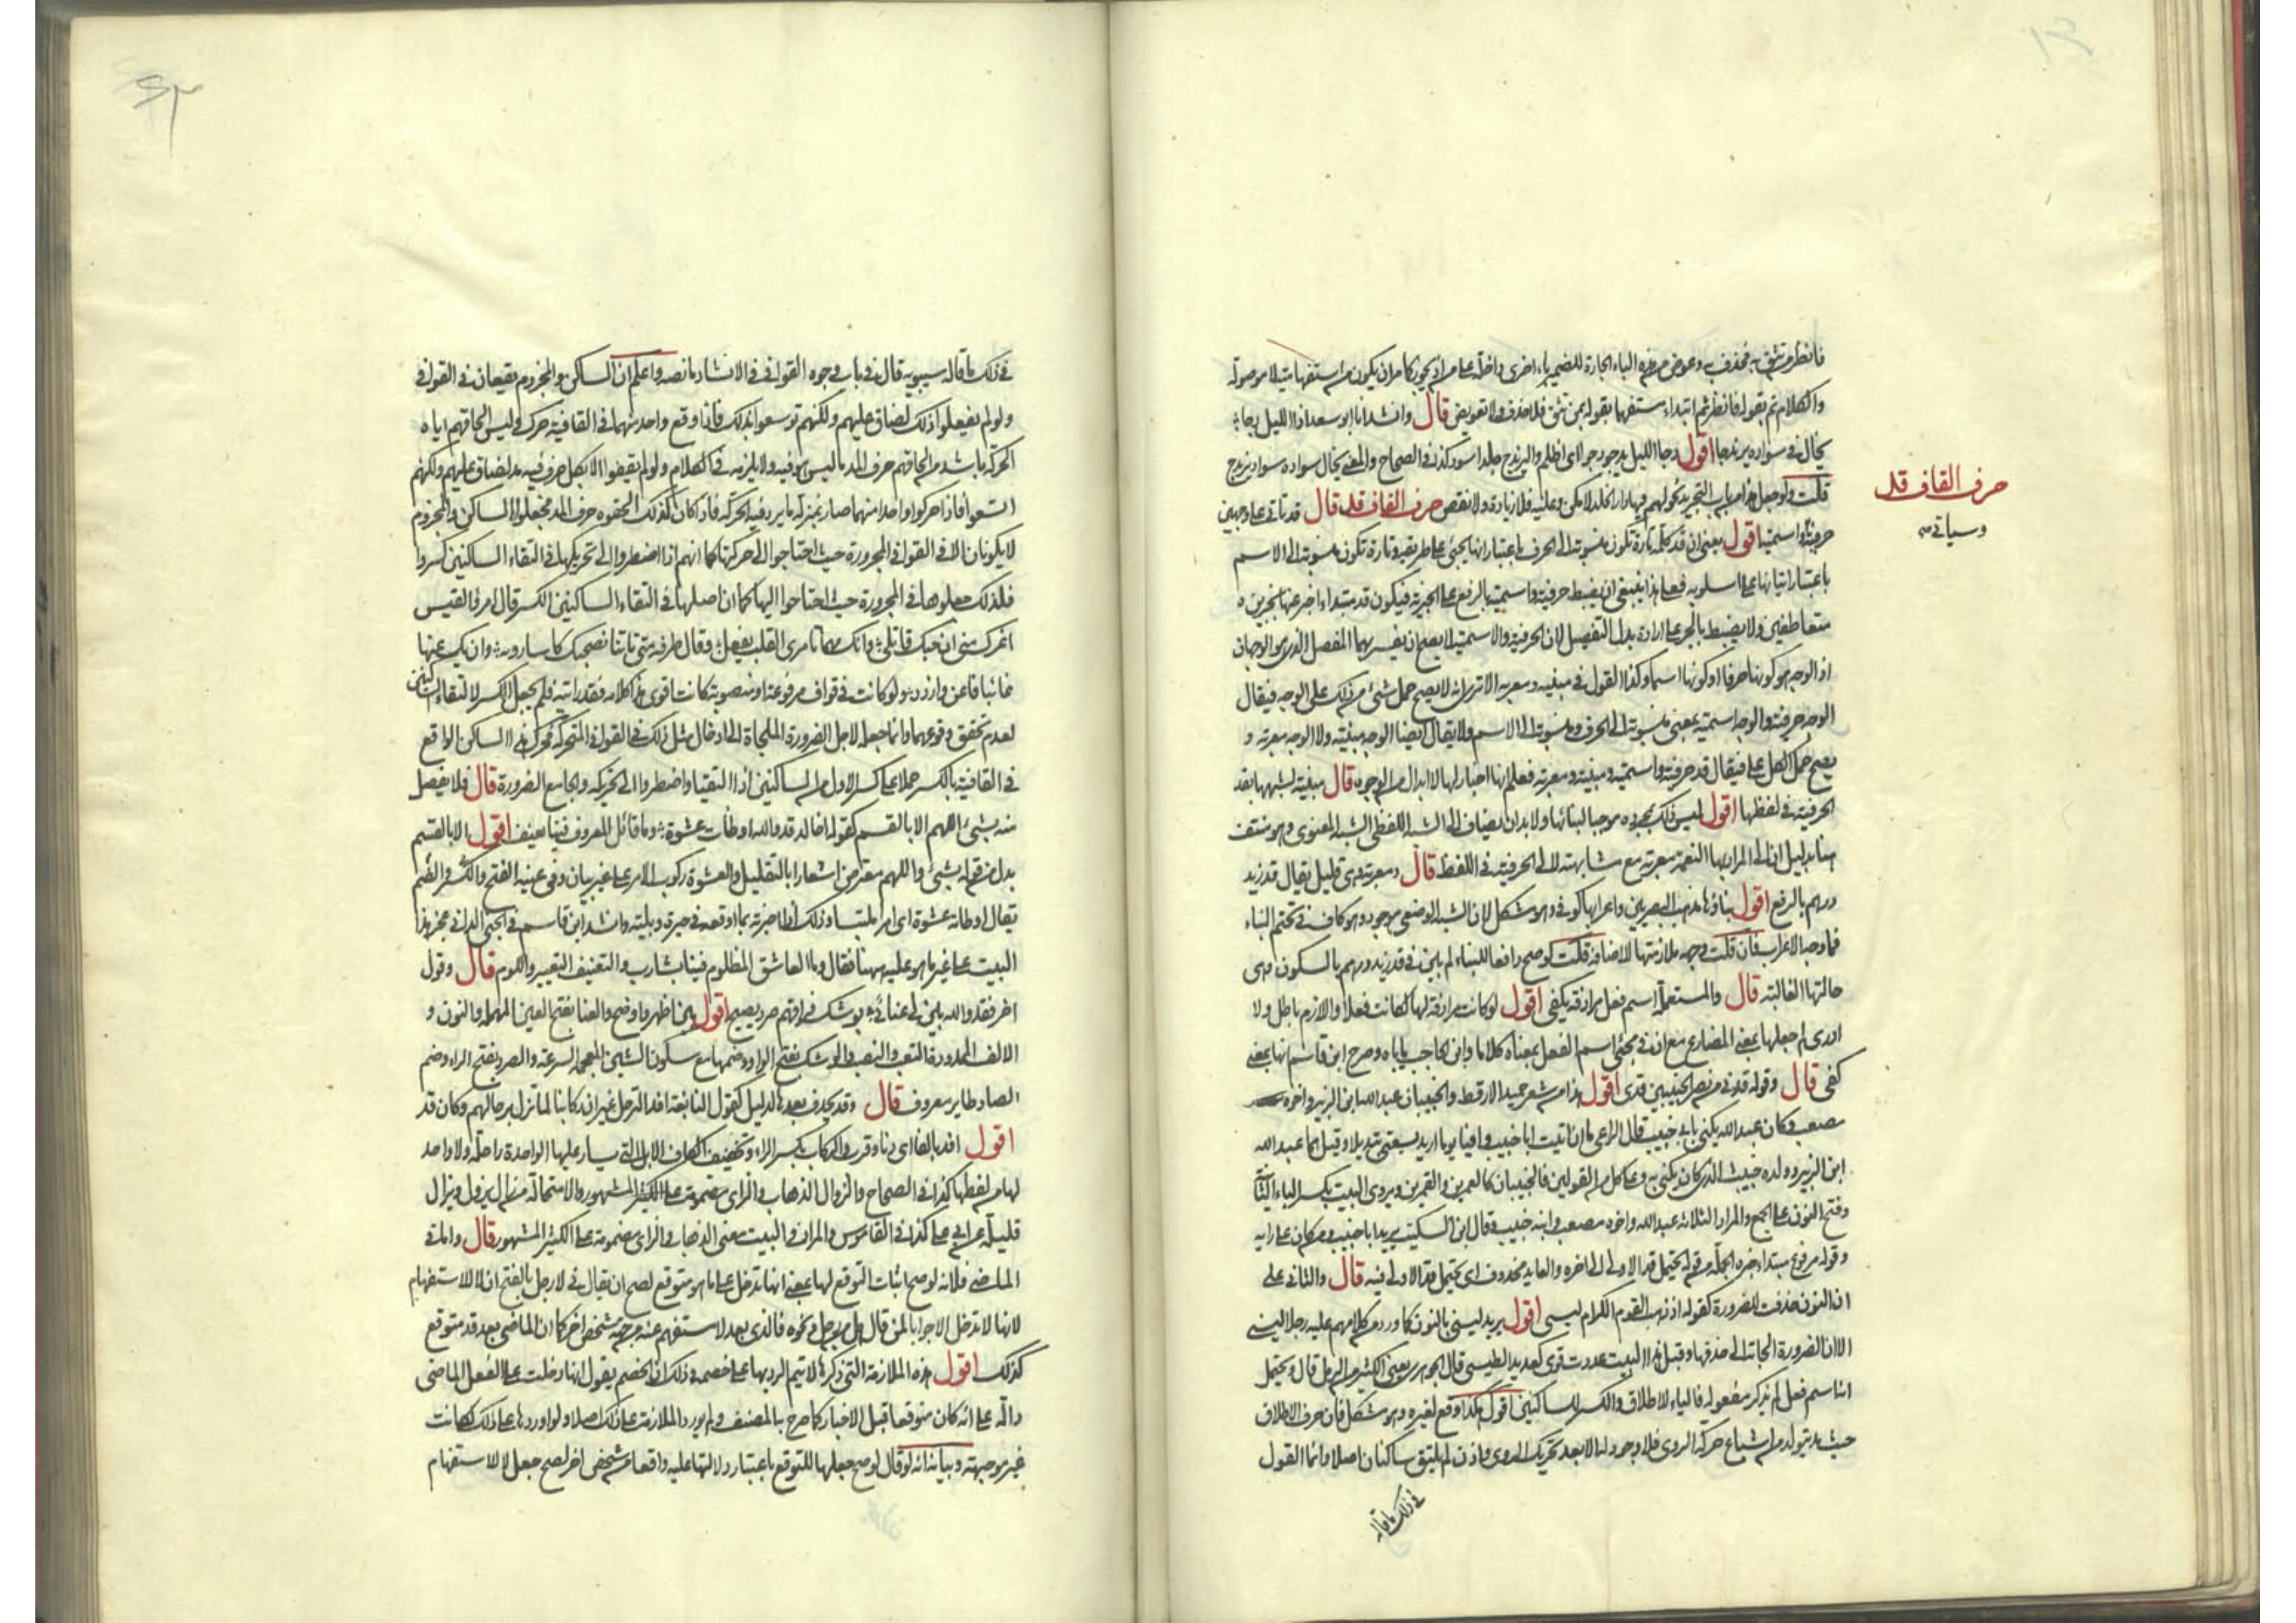 فانظر من تثق به فحذف وعوض من هذه الباء الجارة للضمير باء اخرى داخلة على من اذ يجوز كما مر ان يكون من استفهامية لا موصولة
والكلام تم بقوله فانظر ثم ابتداء مستفهما بقوله بمن تثق فلا حذف ولا تعويض قال وانشدنا ابو سعد اذا الليل دجا
يخال في سواده يرندجا اقول دجا الليل يدجو دجوا اي اظلم واليرندج جلد اسود كذا في الصحاح والمعنى يخال سواده سواد يرندج
قلت ولو جعل هذا من باب التجريد كقولهم فيها دار الخلد لامكن وعليه فلا زيادة ولا نقص حرف القاف قد قال قد تاتي على وجهين
حرف القاف قد
وسياتي
حرفية واسمية اقول يعني ان قد كلمة تارة تكون منسوبة الى الحرف باعتبار انها يجئ على طريقه وتارة تكون منسوبة الى الاسم
باعتبار اتيانها على اسلوبه فعلى هذا ينبغي ان يضبط حرفية واسمية بالرفع على الخبرية فيكون قد مبتداء اخبر عنها بخبرين
متعاطفين ولا يضبط بالجر على ارادة بدل التفصيل لان الحرفية والاسمية لا يصح ان يفسر بهما المفصل الذي هو الوجهان
اذ الوجه هو كونها حرفا او كونها اسما وكذا القول في مبنية ومعربة الا ترى انه لا يصح حمل شئ من ذلك على الوجه فيقال
الوجه حرفية والوجه اسمية بمعنى منسوبة الى الحرف ومنسوبة الى الاسم ولا يقال ايضا الوجه مبنية ولا الوجه معربة و
يصح حمل الكل على قد فيقال قد حرفية واسمية ومبنية ومعربة فعلم انها اخبار لها لا ابدال من الوجوه قال مبنية لشبهها بقد
الحرفية في لفظها اقول ليس ذلك بمجرده موجبا لبنائها ولا بد ان يضاف الى الشبه اللفظي الشبه المعنوي وهو منتف
هنا بدليل ان الى المراد بها النعمة معربة مع مشابهته لالى الحرفية في اللفظ قال ومعربة وهي قليل يقال قد زيد
درهم بالرفع اقول بناؤها مذهب البصريين واعرابها كوفي وهو مشكل لان الشبه الوضعي موجود وهو كاف في تحتم البناء
فما وجه الاعراب فان قلت وجهه ملازمتها للاضافة قلت لو صح دافعا للبناء لم يبن في قد زيد درهم بالسكون وهي
حالتها الغالبة قال والمستعملة اسم فعل مرادفة يكفي اقول لو كانت مرادفة لها لكانت فعلا واللازم باطل ولا
ادري لم جعلها بمعنى المضارع مع ان في مجئ اسم الفعل بمعناه كلاما وابن الحاجب ياباه وصرح ابن قاسم انها بمعنى
كفى قال وقوله قدني من نصر الخبيبين قدي اقول هذا من شعر حميد الارقط والخبيبان عبد الله ابن الزبير واخوه
مصعب وكان عبد الله يكنى بابي خبيب قال الراعي ما ان اتيت ابا خبيب وافدا يوما اريد لبيعتي تبديلا وقيل هما عبد الله
ابن الزبير وولده خبيب الذي كان يكنى به وعلى كل من القولين فالخبيبان كالعمرين والقمرين ويروى البيت بكسر الباء الثانية
وفتح النون على الجمع والمراد الثلاثة عبد الله واخوه مصعب وابنه خبيب وقال ابن السكيت يريد ابا خبيب ومن كان على رايه
وقوله مرفوع مبتداء خبره الجملة من قوله يحتمل قد الاولى الى اخره والعايد محذوف اي يحتمل قد الاولى فيه قال والثاني على
ان النون حذفت للضرورة كقوله اذ ذهب القوم الكرام ليسي اقول يريد ليسني بالنون كما ورد من كلامهم عليه رجلا ليسني
الا ان الضرورة الجاته الى حذفها وقبل هذا البيت عددت قومي كعديد الطيس قال الجوهري يعني الكثير من الرمل قال ويحتمل
انها اسم فعل لم يذكر مفعوله فالياء للاطلاق والكسر للساكنين اقول هكذا وقع لغيره وهو مشكل فان حرف الاطلاق
حرف مد يتولد من اشباع حركة الروي فلا وجود له الا بعد تحريك الروي واذن لم يلتق ساكنان اصلا وانما القول
في ذلك ما قاله
في ذلك ما قاله سيبويه قال في باب وجوه القوافي في الانشاد ما نصه واعلم ان الساكن والمجزوم يقعان في القوافي
ولو لم يفعلوا ذلك لضاق عليهم ولكنهم توسعوا بذلك فاذا وقع واحد منهما في القافية حرك وليس الحاقهم اياه
الحركة باشد من الحاقهم حرف المد ما ليس هو فيه ولا يلزمه في الكلام ولو لم يقفوا الا بكل حرف فيه مد لضاق عليهم ولكنهم
اتسعوا فاذا حركوا واحدا منهما صار بمنزلة ما يرد فيه الحركة فاذا كان كذلك الحقوه حرف المد فجعلوا الساكن والمجزوم
لا يكونان الا في القوافي المجرورة حيث احتاجوا الى حركتها كما انهم اذا اضطروا الى تحريكها في التقاء الساكنين كسروا
فلذلك جعلوها في المجرورة حيث احتاجوا اليها كما ان اصلها في التقاء الساكنين الكسر قال امرؤ القيس
اغرك مني ان حبك قاتلي وانك مهما تامري القلب يفعل وقال طرفة متى تاتنا نصبحك كاسا روية وان تك عنها
غانيا فاغن وازدد ولو كانت في قواف مرفوعة او منصوبة كانت اقوى هذا كلامه فقد رايته فلم يجعل الكسر لالتقاء الساكنين
لعدم تحقق وقوعهما وانما جعله لاجل الضرورة الملجاة الى ادخال مثل ذلك في القوافي المتحركة فحرك هذا الساكن الواقع
في القافية بالكسر حملا على كسر الاول من الساكنين اذا التقيا واضطروا الى تحريكه والجامع الضرورة قال فلا يفصل
منه بشئ اللهم الا بالقسم كقوله اخالد قد والله اوطأت عشوة وما قائل المعروف فينا يعنف اقول الا بالقسم
بدل من قوله بشئ واللهم معترض اشعارا بالتقليل والعشوة ركوب الامر على غير بيان وفي عينه الفتح والكسر والضم
يقال اوطاته عشوة اى امرا ملتبسا وذلك اذا اخبرته بما اوقعه في حيرة وبلية وانشد ابن قاسم في الجنى الداني عجز هذا
البيت على غير ما هو عليه ههنا فقال وما العاشق المظلوم فينا بسارق والتعنيف التعيير واللوم قال وقول
اخر فقد والله بين لي عنائي بوشك فراقهم صرد يصيح اقول بين اظهر واوضح والعنا بفتح العين المهملة والنون و
الالف الممدودة التعب والنصب والوشك بفتح الواو وضمها مع سكون الشين المعجمة السرعة والصرد بفتح الراء وضم
الصاد طاير معروف قال وقد يحذف بعدها لدليل كقول النابغة افد الترحل غير ان ركابنا لما تزل برحالهم وكان قد
اقول افد بالفا اى دنا وقرب والركاب بكسر الراء وتخفيف الكاف الابل التي يسار عليها الواحدة راحلة ولا واحد
لها من لفظها كذا في الصحاح والزوال الذهاب والزاى مضمومة على الكثير المشهور والاستحالة من زال يزول ويزال
قليلة عن ابي علي كذا في القاموس والمراد في البيت معنى الذهاب والزاى مضمومة على الكثير المشهور قال واما في
الماضي فلانه لو صح اثبات التوقع لها بمعنى انها تدخل على ما هو متوقع لصح ان يقال في لا رجل بالفتح ان لا للاستفهام
لانها لا تدخل الا جوابا لمن قال هل من رجل ونحوه فالذي بعد لا مستفهم عنه من جهة شخص اخر كما ان الماضي بعد قد متوقع
كذلك اقول هذه الملازمة التي ذكرها لا يتم الرد بها على خصمه وذلك ان الخصم يقول انها دخلت على الفعل الماضي
دالة على انه كان متوقعا قبل الاخبار كما صرح به المصنف ولم يورد الملازمة على ذلك اصلا ولو اوردها على ذلك لكانت
غير موجهة وبيانه انه لو قال لو صح جعلها للتوقع باعتبار دلالتها عليه واقعا من شخص اخر لصح جعل لا للاستفهام